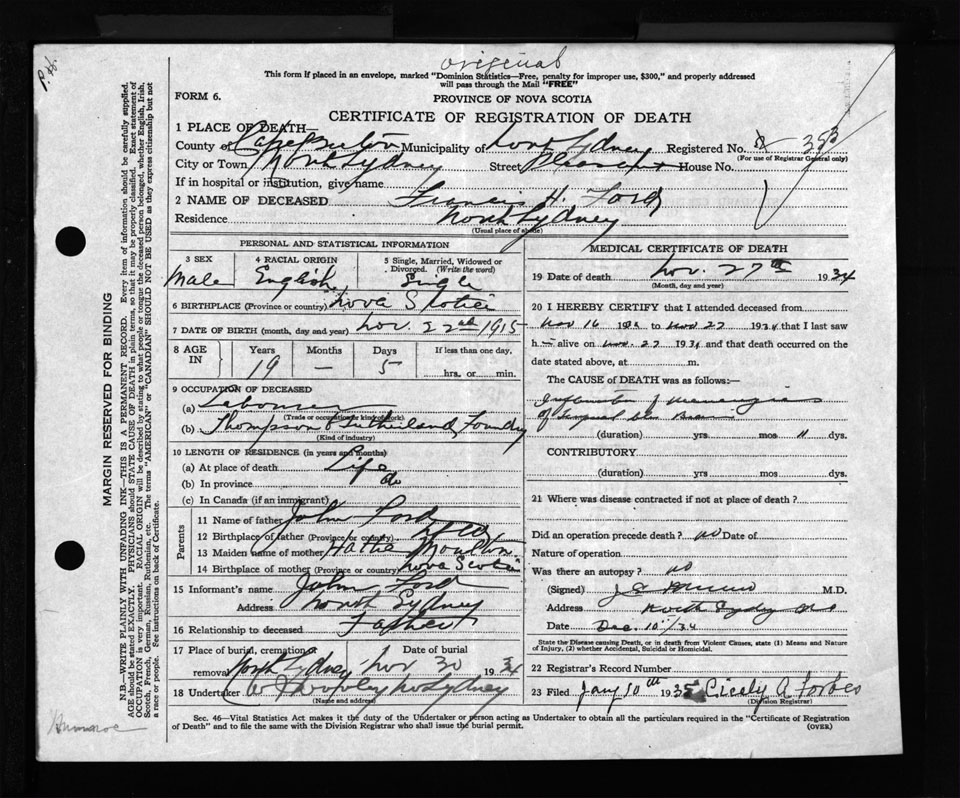 original
This form if placed in an envelope, marked "Dominion Statistics—Free, penalty for improper use, $300," and properly addressed
will pass through the Mail "FREE"
FORM 6.
PROVINCE OF NOVA SCOTIA
CERTIFICATE OF REGISTRATION OF DEATH
1 PLACE OF DEATH—
County of Cape Breton Municipality of North Sydney Registered No. 353
(For use of Registrar General only)
City or Town North Sydney Street Pleasant House No.
If in hospital or institution, give name
2 NAME OF DECEASED Francis H. Ford
Residence North Sydney
(Usual place of abode)
PERSONAL AND STATISTICAL INFORMATION
3 SEX 4 RACIAL ORIGIN 5 Single, Married, Widowed or Divorced. (Write the word)
Male English Single
6 BIRTHPLACE (Province or country) Nova Scotia
7 DATE OF BIRTH (month, day and year) Nov. 22nd 1915
8 AGE IN Years Months Days If less than one day,
19 — 5 hrs. or min.
9 OCCUPATION OF DECEASED
(a) Labourer
(Trade or occupation or kind of work)
(b) Thompson & Sutherland Foundry
(Kind of industry)
10 LENGTH OF RESIDENCE (in years and months)
(a) At place of death Life
(b) In province do
(c) In Canada (if an immigrant)
Parents
11 Name of father John Ford
12 Birthplace of father (Province or country) Nfld
13 Maiden name of mother Hattie Moulton
14 Birthplace of mother (Province or country) Nova Scotia
15 Informant's name John Ford
Address North Sydney
16 Relationship to deceased Father
17 Place of burial, cremation or removal Date of burial
North Sydney Nov 30 1934
18 Undertaker No Sydney
(Name and address)
MEDICAL CERTIFICATE OF DEATH
19 Date of death Nov. 27th 1934
(Month, day and year)
20 I HEREBY CERTIFY that I attended deceased from
Nov 16 193 to Nov 27 1934 that I last saw
h alive on Nov. 27 1934 and that death occurred on the
date stated above, at m.
The CAUSE of DEATH was as follows:—
of
(duration) yrs mos 11 dys.
CONTRIBUTORY
(duration) yrs. mos. dys.
21 Where was disease contracted if not at place of death?
Did an operation precede death? no Date of
Nature of operation
Was there an autopsy? no
(Signed) M.D.
Address North Sydney N.S.
Date Dec. 10/34
State the Disease causing Death, or in death from Violent Causes, state (1) Means and Nature
of Injury, (2) whether Accidental, Suicidal or Homicidal.
22 Registrar's Record Number
23 Filed Jany 10th 1935 A. Forbes
(Division Registrar)
Sec. 46—Vital Statistics Act makes it the duty of the Undertaker or person acting as Undertaker to obtain all the particulars required in the "Certificate of Registration
of Death" and to file the same with the Division Registrar who shall issue the burial permit. (OVER)
MARGIN RESERVED FOR BINDING
N.B.—WRITE PLAINLY WITH UNFADING INK—THIS IS A PERMANENT RECORD. Every item of information should be carefully supplied.
AGE should be stated EXACTLY. PHYSICIANS should STATE CAUSE OF DEATH in plain terms, so that it may be properly classified. Exact statement of
OCCUPATION is very important. RACIAL ORIGIN will be described by stating to what people or tongue the deceased person belonged, whether English, Irish,
Scotch, French, German, Russian, Ruthenian, etc. The terms "AMERICAN" or "CANADIAN" SHOULD NOT BE USED as they express citizenship but not
a race or people. See instructions on back of Certificate.